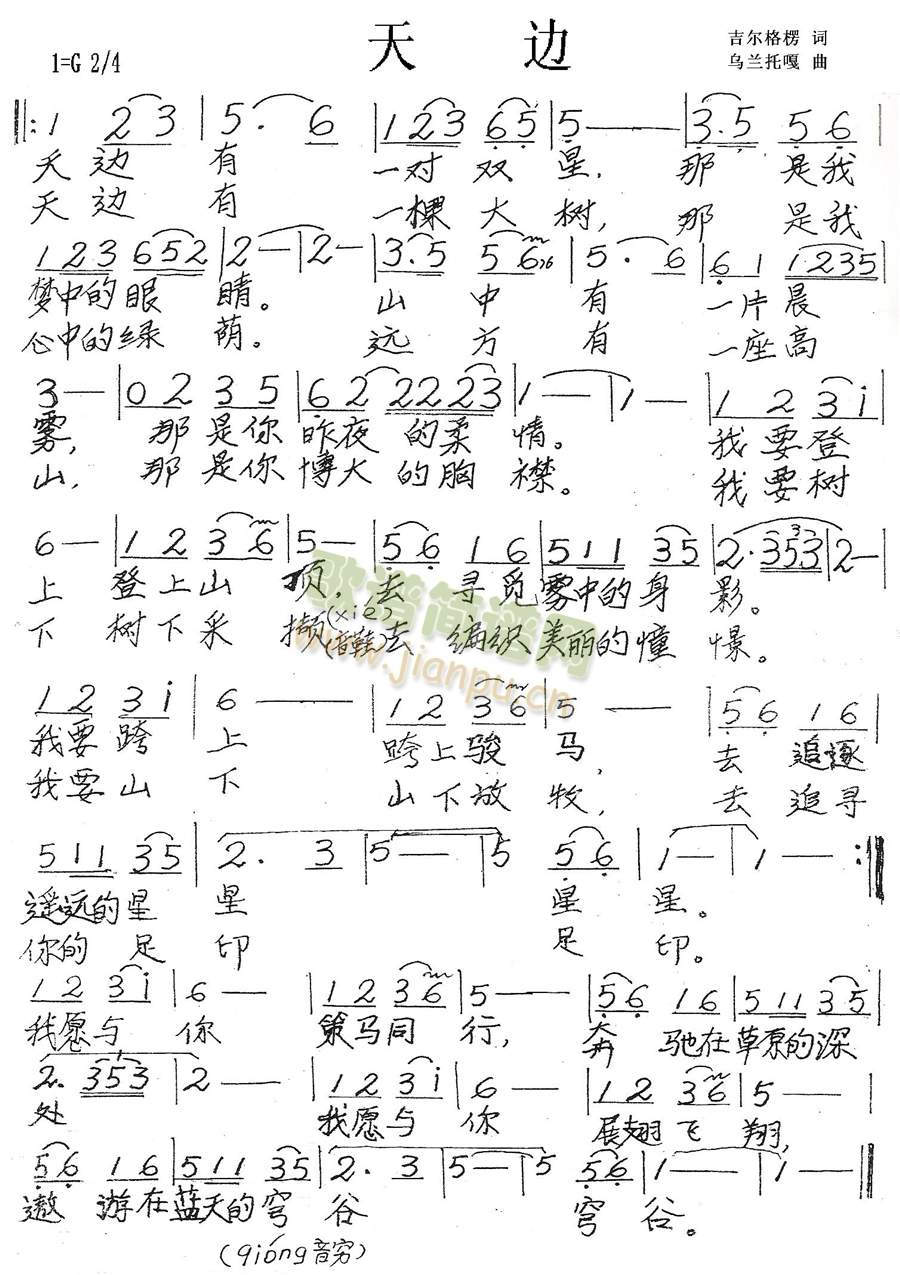 天边
吉尔格楞 词
1=G 2/4
乌兰托嘎 曲
‖: 1 2 3 | 5 · 6 | 1 2 3 6 5 | 5 — — | 3 · 5 5 6
天边 有 一对 双 星, 那 是我
天边 有 一棵 大 树, 那 是我
1 2 3 6 5 2 | 2 — | 2 — | 3 · 5 5 6 | 5 · 6 | 6 1 1 2 3 5
梦中的眼 睛。 山 中 有 一片晨
心中的绿 荫。 远 方 有 一座高
3 — | 0 2 3 5 | 6 2 2 2 2 3 | 1 — | 1 — | 1 2 3 i
雾, 那是你昨夜的柔情。 我要登
山, 那是你博大的胸襟。 我要树
6 — | 1 2 3 6 | 5 — | 5 6 1 6 | 5 1 1 3 5 | 2 · 3 5 3 | 2 —
上 登上山 顶, 去 寻觅雾中的身 影。
下 树下采 撷(xié)(音鞋)去 编织美丽的憧 憬。
歌谱简谱网
www.jianpu.cn
1 2 3 i | 6 — — | 1 2 3 6 | 5 — — | 5 6 1 6
我要跨 上 跨上骏 马, 去 追逐
我要山 下 山下放 牧, 去 追寻
5 1 1 3 5 | 2 · 3 | 5 — | 5 5 6 | 1 — | 1 — :‖
遥远的星 星 星 星。
你的 足 印 足 印。
1 2 3 i | 6 — | 1 2 3 6 | 5 — — | 5 6 1 6 | 5 1 1 3 5
我愿与 你 策马同 行, 奔 驰在草原的深
2 · 3 5 3 | 2 — — | 1 2 3 i | 6 — — | 1 2 3 6 | 5 — |
处 我愿与 你 展翅飞 翔,
5 6 1 6 | 5 1 1 3 5 | 2 · 3 | 5 — | 5 5 6 | 1 — — | 1 — ‖
遨 游在蓝天的穹 谷 穹 谷。
(qióng音穷)